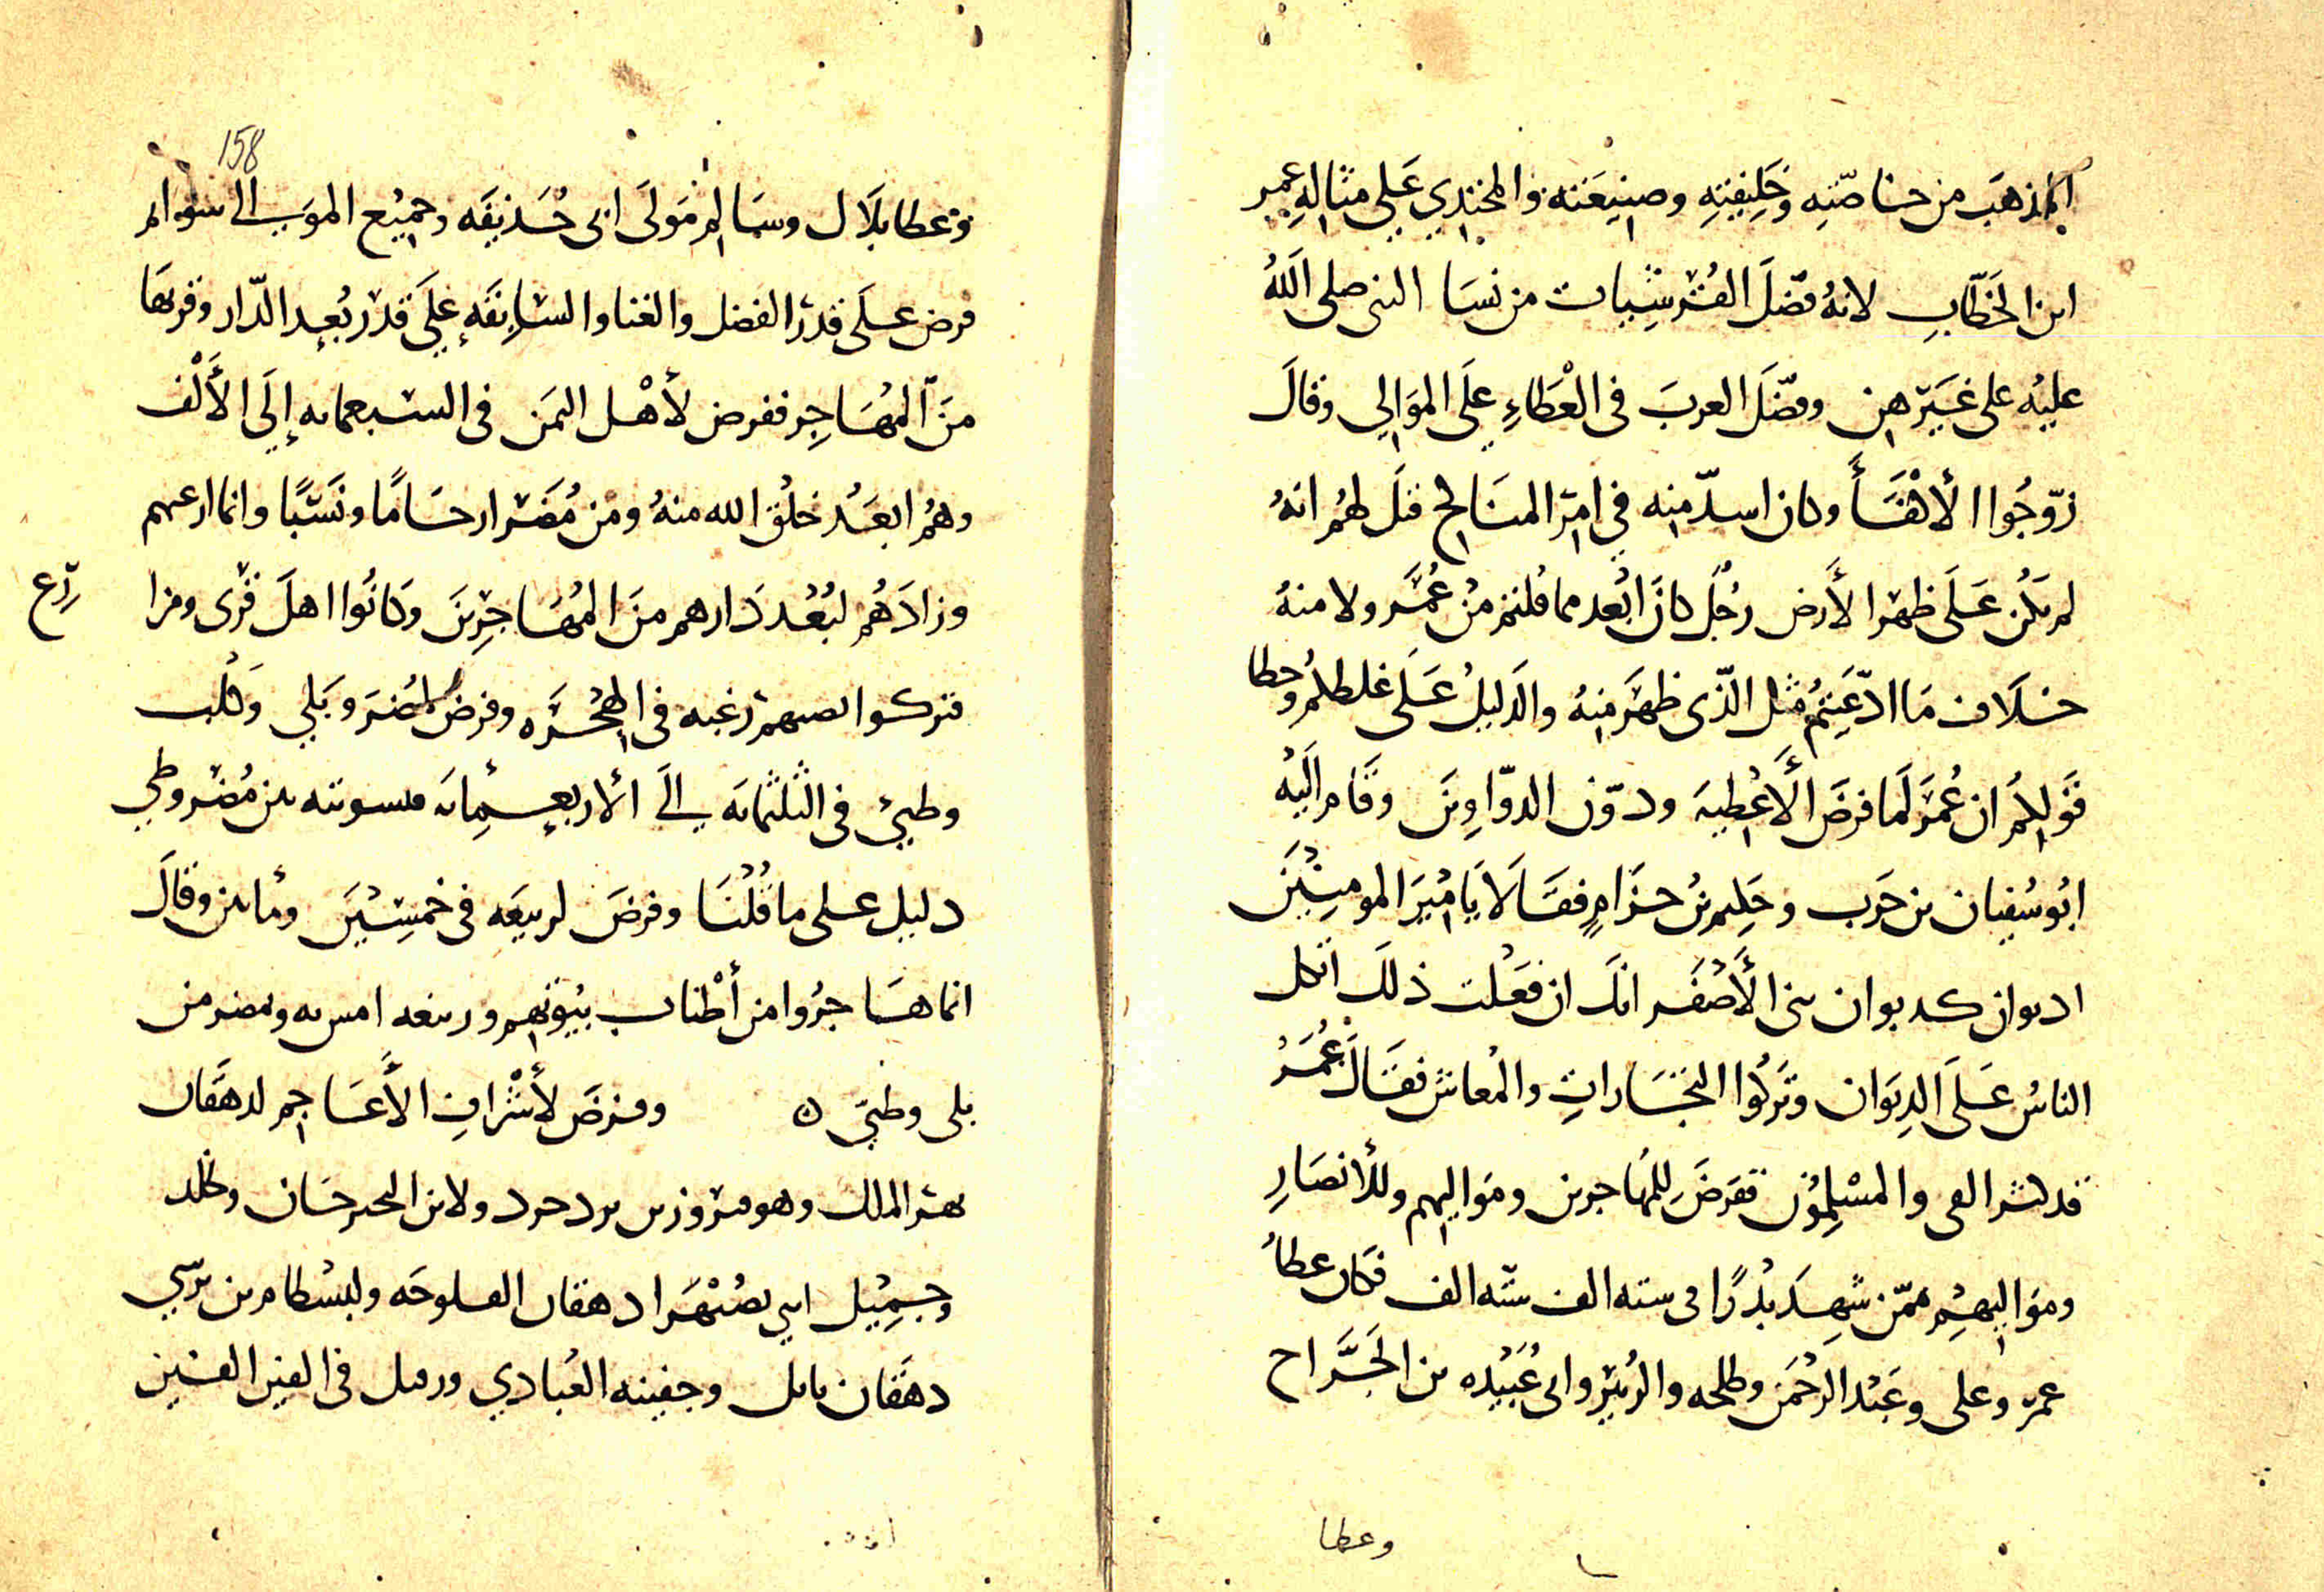 المذهب من خاصّته وخليفته وصنيعته والمحتذي على مثاله عمر
ابن الخطّاب لانه فضّل القرشيات من نسا النبى صلى الله
عليه على غيرهن وفضّل العرب فى العطاء على الموالي وقال
زوّجوا الأكفأ وكان اشدّ منه في امر المناكح قيل لهم انه
لم يكن على ظهر الأرض رجل كان أبعد مما قلتم من عمر ولا منه
خلاف ما ادّعيتم مثل الذى ظهر منه والدليل على غلطكم وخطا
قولكم ان عمر لما فرض الأعطية ودوّن الدواوين وقام اليه
ابو سفيان بن حرب وحكيم بن حزام فقالا يا امير المومنين
اديوان كديوان بنى الأصفر انك ان فعلت ذلك اتكل
الناس على الديوان وتركوا التجارات والمعاش فقال عمر
قد كثر الفى والمسلمون ففرض للمهاجرين ومواليهم وللأنصار
ومواليهم ممّن شهد بدرًا فى سته الف سته الف فكان عطا
عمر وعلى وعبد الرحمن وطلحه والزبير وابى عبيده بن الجرّاح
وعطا
158
وعطا بلال وسالم مولى ابى حذيفه وجميع الموالي سوا ثم
فرض على قدر الفضل والغنا والسابقه على قدر بعد الدّار وقربها
من المهاجر ففرض لأهل اليمن فى السبعمايه إلى الألف
وهم ابعد خلق الله منه ومن مضر ارحامًا ونسبًا وانما ارغبهم
وزادهم لبعد دارهم من المهاجرين وكانوا اهل قرى ومزا
رع
فتركوا رغبه فى الهجره وفرض لمضر وبلي وكلب
وطيئ فى الثلثمايه الى الأربعمايه فتسويته بين مضر وطي
دليل على ما قلنا وفرض لربيعه فى خمسين ومايتين وقال
انما هاجروا من أطناب بيوتهم وربيعه ومضر من
بلى وطيّ ه وفرض لأشراف الأعاجم لدهقان
نهر الملك وهو فيروز بن يزدجرد ولابن النخيرخان وخلد
وجميل ابني بصبهرا دهقان الفلوجه ولبسطام بن نرسي
دهقان بابل وجفينه العبادي ورفيل فى الفين الفين